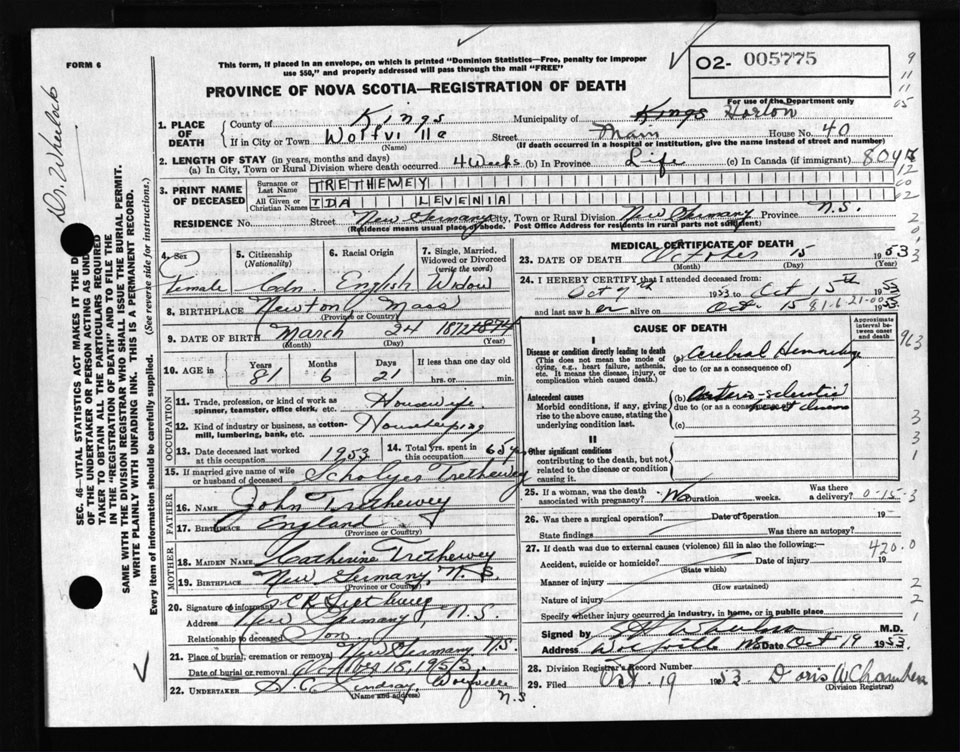 FORM 6
This form, if placed in an envelope, on which is printed "Dominion Statistics—Free, penalty for improper
use $50," and properly addressed will pass through the mail "FREE"
02- 005775
PROVINCE OF NOVA SCOTIA—REGISTRATION OF DEATH
For use of the Department only
Dr. Wheelock
1. PLACE OF DEATH County of Kings Municipality of Kings Horton
If in City or Town Wolfville Street Main House No. 40
(Name) (If death occurred in a hospital or institution, give the name instead of street and number)
2. LENGTH OF STAY (in years, months and days)
(a) In City, Town or Rural Division where death occurred 4 Weeks (b) In Province Life (c) In Canada (if immigrant) 80 yrs
3. PRINT NAME OF DECEASED Surname or Last Name TRETHEWEY
All Given or Christian Names IDA LEVENIA
RESIDENCE No. Street New Germany City, Town or Rural Division New Germany Province N.S.
(Residence means usual place of abode. Post Office Address for residents in rural parts not sufficient)
4. Sex Female
5. Citizenship (Nationality) Cdn.
6. Racial Origin English
7. Single, Married, Widowed or Divorced (write the word) Widow
8. BIRTHPLACE Newton, Mass
(Province or Country)
9. DATE OF BIRTH March 24 1872 1874
(Month) (Day) (Year)
10. AGE in Years 81 Months 6 Days 21 If less than one day old hrs. or min.
OCCUPATION
11. Trade, profession, or kind of work as spinner, teamster, office clerk, etc. Housewife
12. Kind of industry or business, as cotton-mill, lumbering, bank, etc. Housekeeping
13. Date deceased last worked at this occupation 1953
14. Total yrs. spent in this occupation 65 yrs
15. If married give name of wife or husband of deceased Trethewey
FATHER
16. NAME John Trethewey
17. BIRTHPLACE England
(Province or Country)
MOTHER
18. MAIDEN NAME Catherine Trethewey
19. BIRTHPLACE New Germany, N.S.
(Province or Country)
20. Signature of informant C R Trethewey
Address New Germany, N.S.
Relationship to deceased Son.
21. Place of burial, cremation or removal New Germany N.S.
Date of burial or removal October 18, 1953
22. UNDERTAKER H.C. Lindsay, Wolfville N.S.
(Name and address)
MEDICAL CERTIFICATE OF DEATH
23. DATE OF DEATH October 15 1953
(Month) (Day) (Year)
24. I HEREBY CERTIFY that I attended deceased from:
Oct 7th 1953 to Oct 15th 1953
and last saw her alive on Oct 15 1953.
81.6.21-00
CAUSE OF DEATH
Approximate interval between onset and death
I
Disease or condition directly leading to death
(This does not mean the mode of dying, e.g., heart failure, asthenia, etc. It means the disease, injury, or complication which caused death.)
(a) Cerebral Hemorrhage
due to (or as a consequence of)
Antecedent causes
Morbid conditions, if any, giving rise to the above cause, stating the underlying condition last.
(b) Arterio-sclerotic heart disease
due to (or as a consequence of)
(c)
II
Other significant conditions
contributing to the death, but not related to the disease or condition causing it.
25. If a woman, was the death associated with pregnancy? No Duration weeks. Was there a delivery? 0-15-3
26. Was there a surgical operation? Date of operation 19
State findings Was there an autopsy?
27. If death was due to external causes (violence) fill in also the following: 420.0
Accident, suicide or homicide? Date of injury 19
(State which)
Manner of injury
(How sustained)
Nature of injury
Specify whether injury occurred in industry, in home, or in public place
Signed by M.D.
Address Wolfville NS Date Oct 19 1953.
28. Division Registrar's Record Number
29. Filed Oct. 19 1953 Doris W Chambers
(Division Registrar)
SEC. 46—VITAL STATISTICS ACT MAKES IT THE
OF THE UNDERTAKER OR PERSON ACTING AS UNDER
TAKER TO OBTAIN ALL THE PARTICULARS REQUIRED
IN THE "REGISTRATION OF DEATH" AND TO FILE THE
SAME WITH THE DIVISION REGISTRAR WHO SHALL ISSUE THE BURIAL PERMIT.
WRITE PLAINLY WITH UNFADING INK. THIS IS A PERMANENT RECORD.
Every item of information should be carefully supplied. (See reverse side for instructions.)
9
11
11
05
12
60
02
963
3
3
1
2
2
1